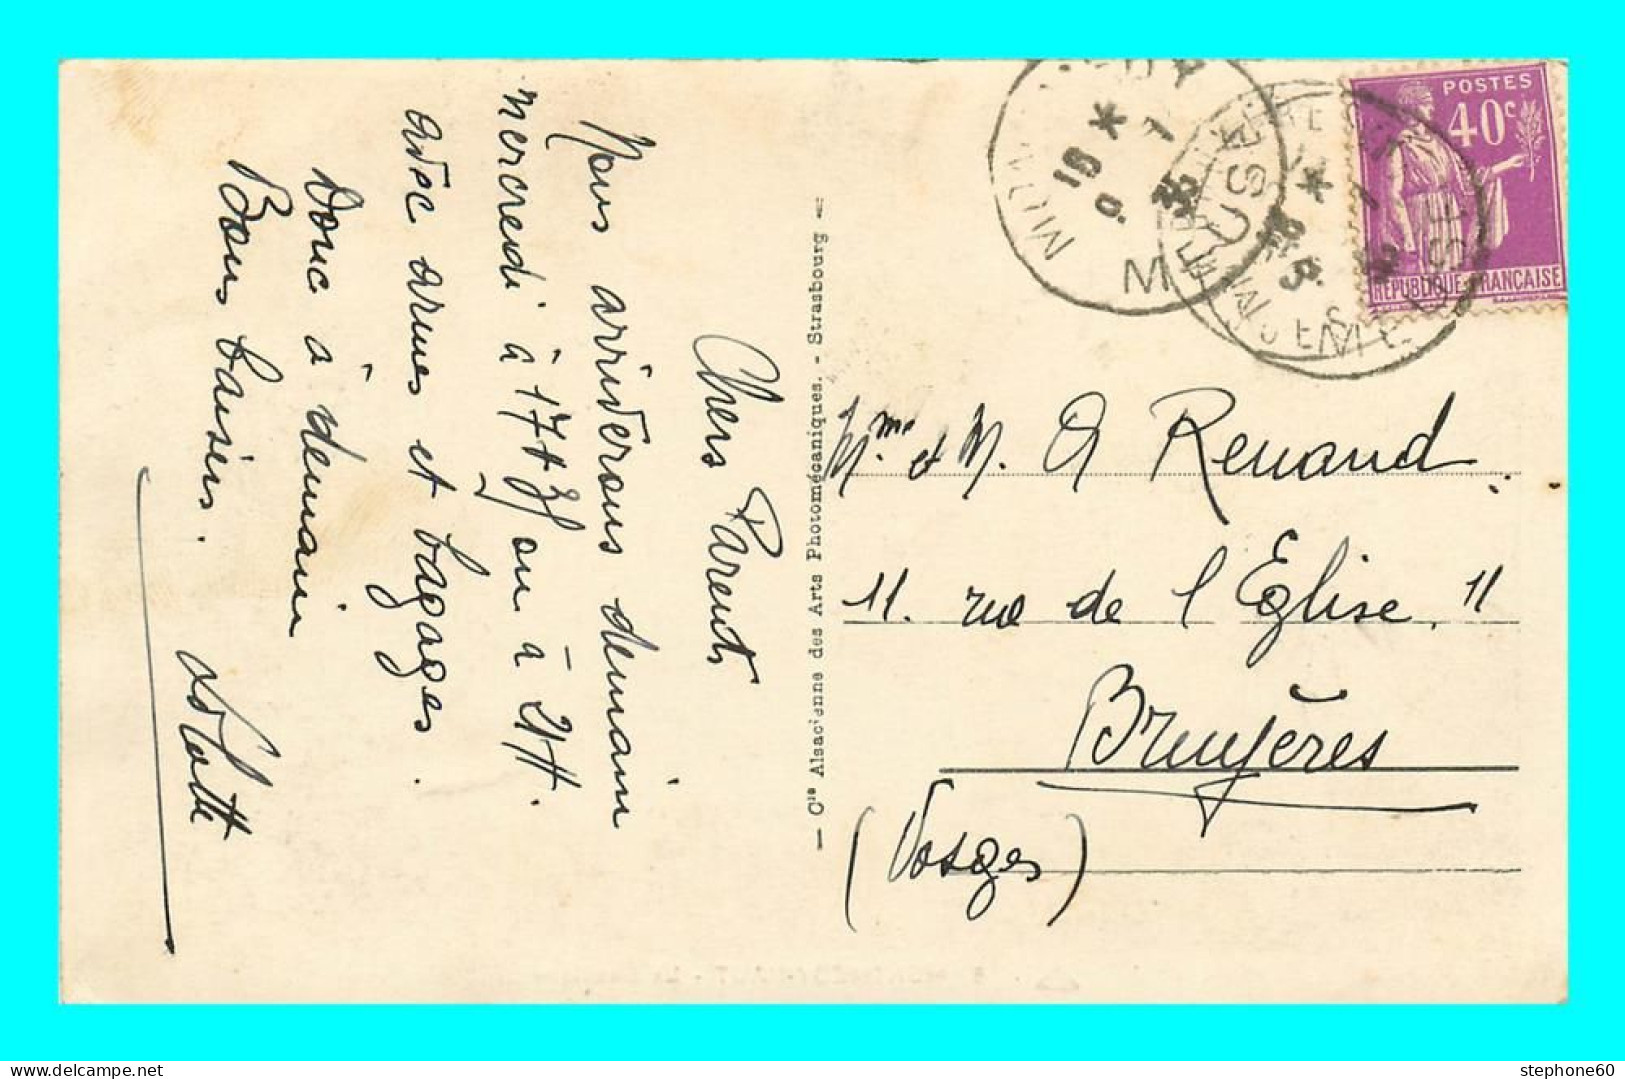 Chers Parents
Nous arriverons demain
mercredi à 17H ou à 21H.
avec armes et bagages.
Donc à demain
Bons baisers.
— Cie Alsacienne des Arts Photomécaniques. - Strasbourg —
POSTES
40c
RÉPUBLIQUE FRANÇAISE
MEUSE
Mme et M. A Renaud
11. rue de l'Eglise. 11
Bruyères
(Vosges)
stephone60